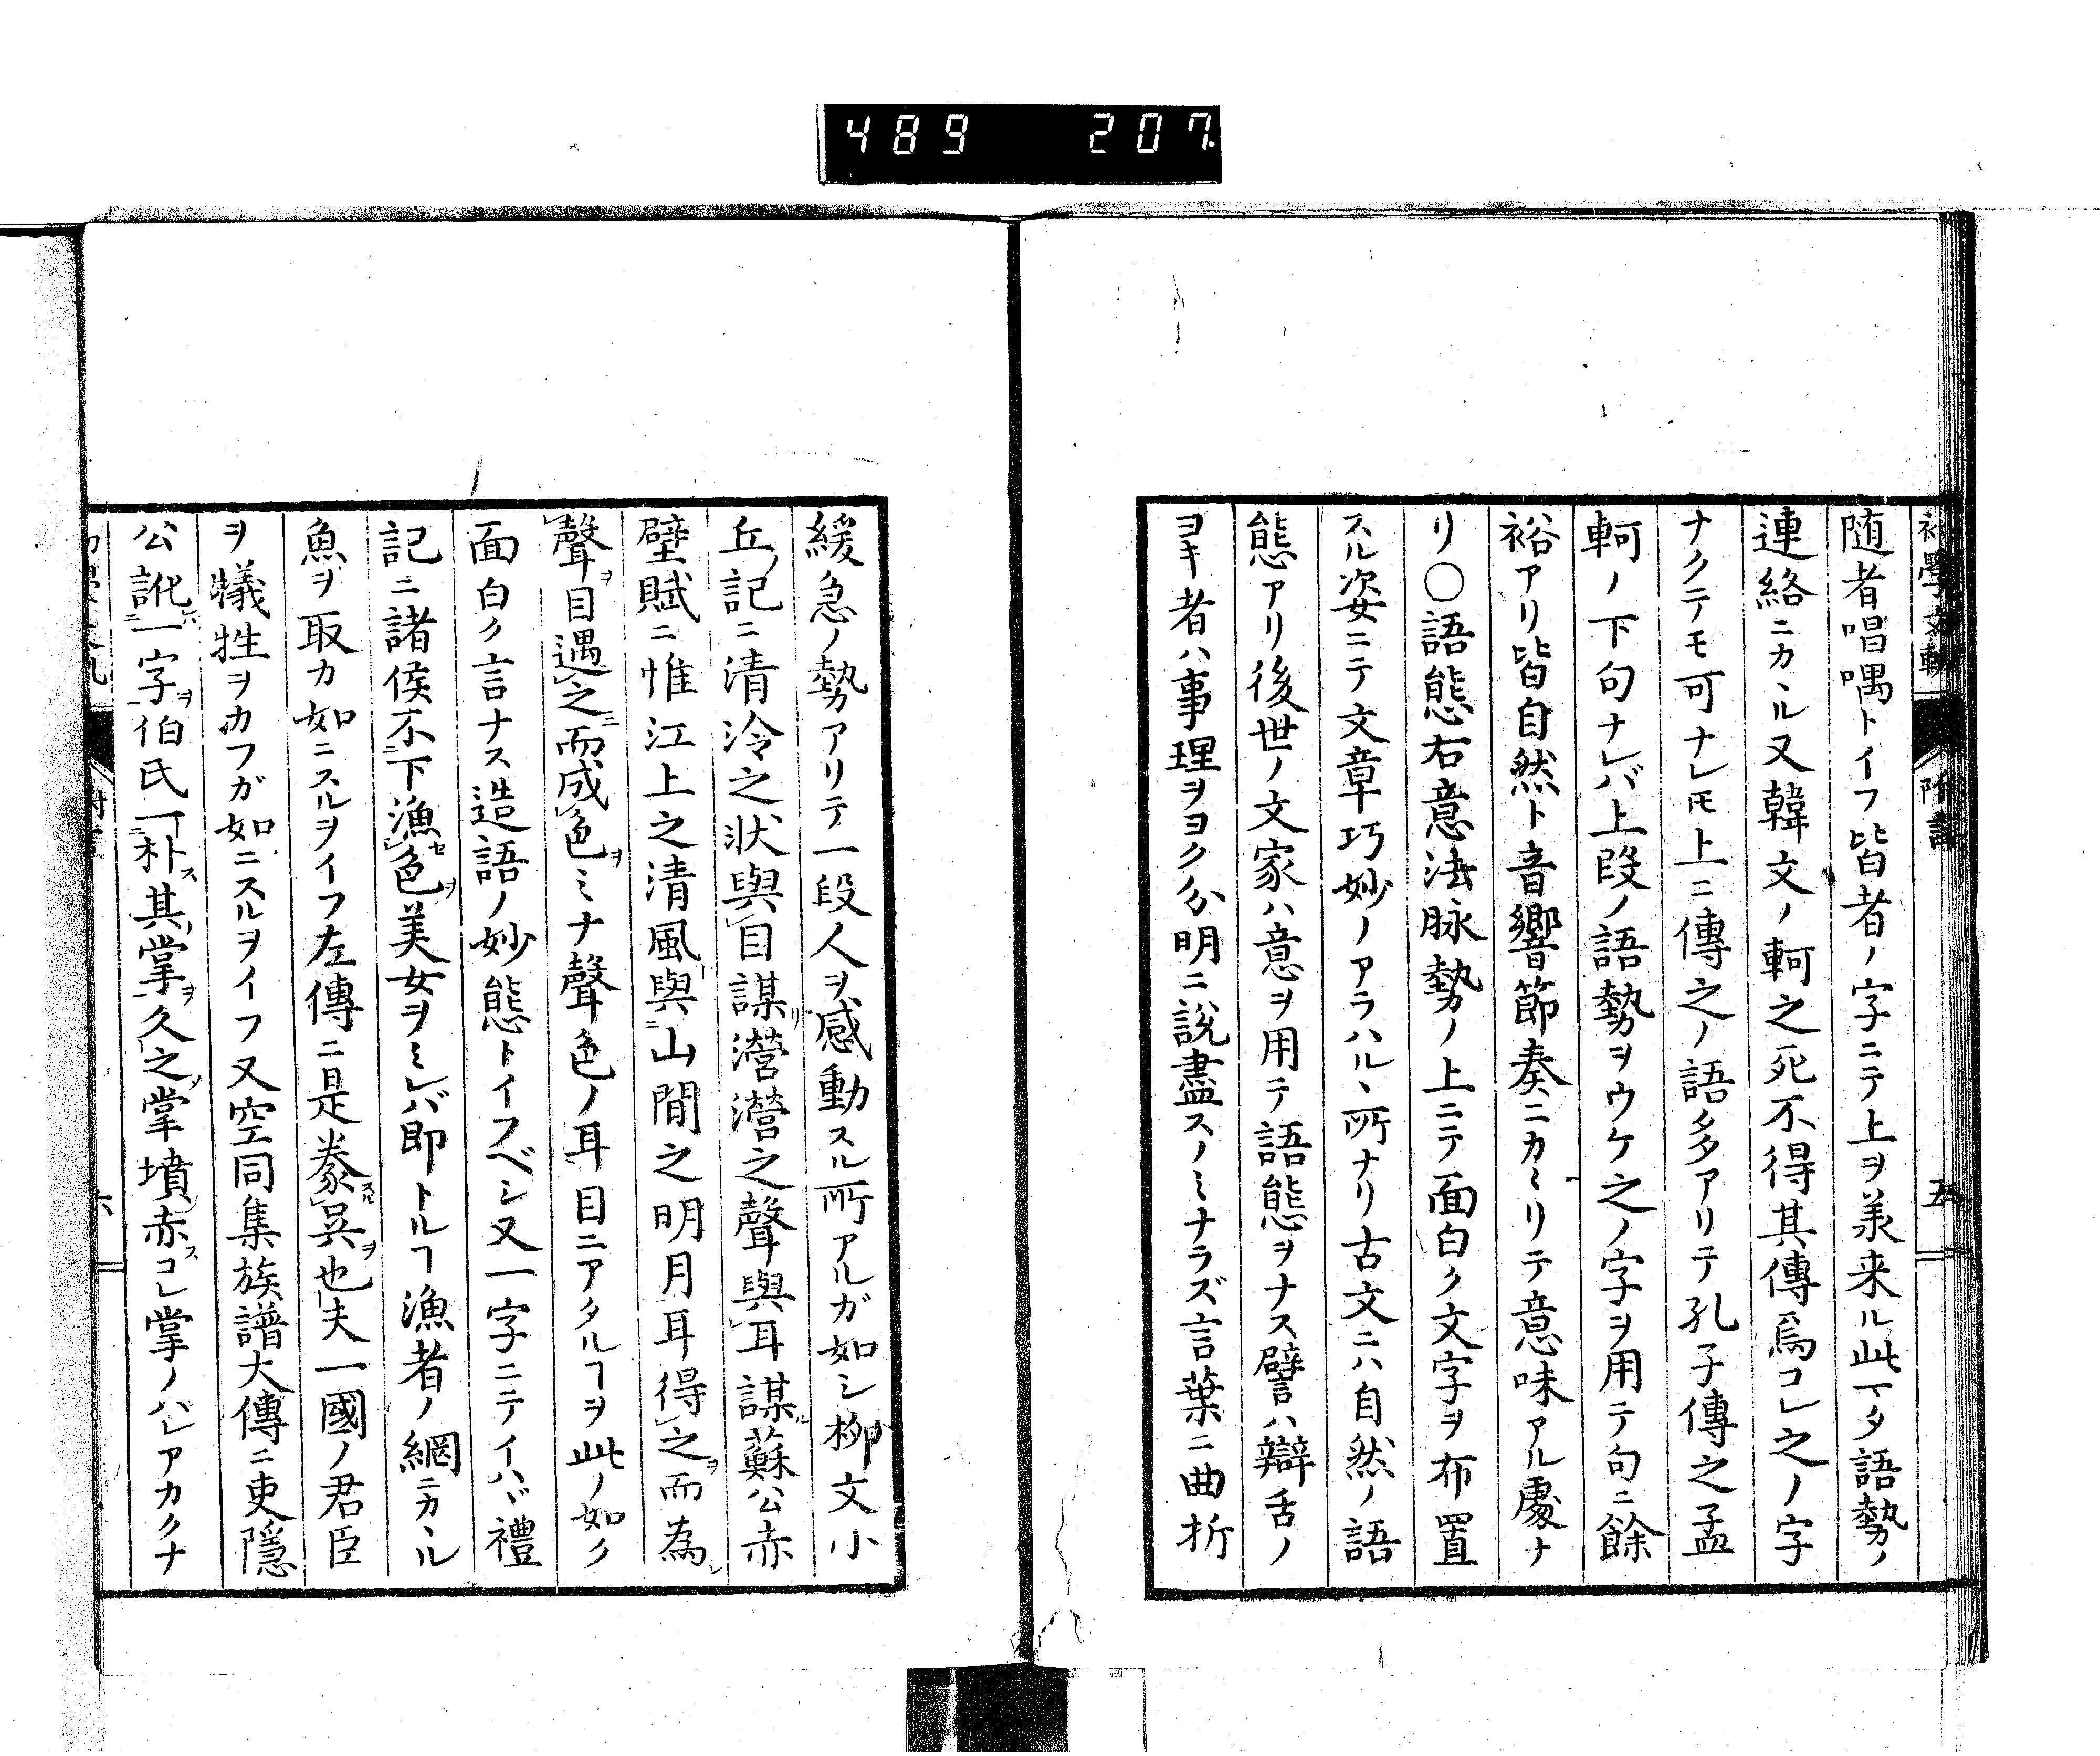 489 207
随者唱喁トイフ皆者ノ字ニテ上ヲ羕来ル此下タ語勢ノ
連絡ニカヽル又韓文ノ軻之死不得其傳焉コレ之ノ字
ナクテモ可ナレ𪜈上ニ傳之ノ語多アリテ孔子傳之孟
軻ノ下句ナレバ上段ノ語勢ヲウケ之ノ字ヲ用テ句ニ餘
裕アリ皆自然ト音響節奏ニカヽリテ意味アル處ナ
リ○語態右意法脉勢ノ上ニテ面白ク文字ヲ布置
スル姿ニテ文章巧妙ノアラハルヽ所ナリ古文ニハ自然ノ語
態アリ後世ノ文家ハ意ヲ用テ語態ヲナス譬ハ辯舌ノ
ヨキ者ハ事理ヲヨク分明ニ説盡スノミナラズ言葉ニ曲折
附言
五
緩急ノ勢アリテ一段人ヲ感動スル所アルガ如シ柳文小
丘ノ記ニ清泠之状與目謀瀯瀯之聲與耳謀ル蘇公赤
壁賦ニ惟江上之清風與山間之明月耳得之ヲ而為シ
聲ヲ目遇之ニ而成色ヲミナ聲色ノ耳目ニアタルヿヲ此ノ如ク
面白ク言ナス造語ノ妙態トイフベシ又一字ニテイハヾ禮
記ニ諸侯不下漁セ色ヲ美女ヲミレバ即トルヿ漁者ノ網ニカヽル
魚ヲ取カ如ニスルヲイフ左傳ニ是豢スル吳ヲ也夫一國ノ君臣
ヲ犠牲ヲカフガ如ニスルヲイフ又空同集族譜大傳ニ吏隠
公訛一字ヲ伯氏朴ス其掌ヲ久之ノ掌墳赤スコレ掌ノハレアカクナ
六